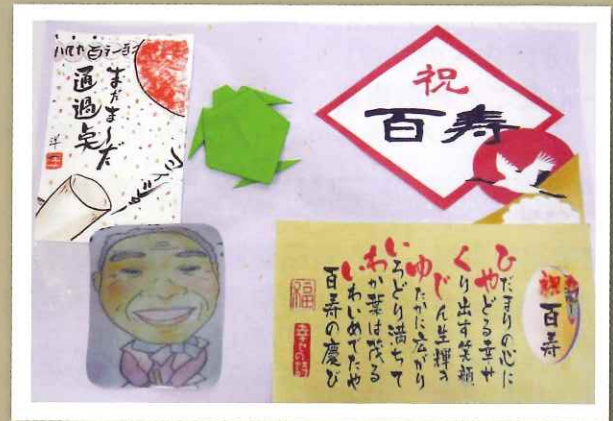 まだまーだ
通過点
洋
祝
百寿
祝
百寿
ひだまりの心に
やどる幸せ
くり出す笑顔
じん生輝き
ゆたかに広がり
いろどり満ちて
わか葉は茂る
いわいめでたや
百寿の慶び
福
幸せの詩